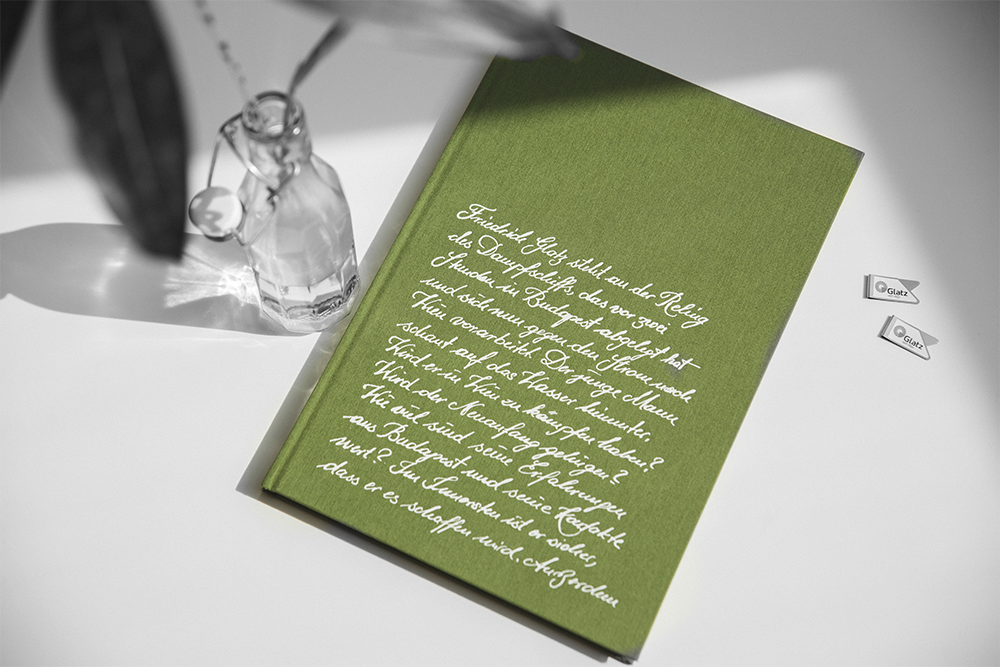 Friedrich Glatz steht an der Reling
des Dampfschiffs, das vor zwei
Stunden in Budapest abgelegt hat
und sich nun gegen den Strom nach
Wien vorarbeitet. Der junge Mann
schaut auf das Wasser hinunter.
Wird er in Wien zu kämpfen haben?
Wird der Neuanfang gelingen?
Wie viel sind seine Erfahrungen
aus Budapest und seine Kontakte
wert? Im Innersten ist er sicher,
dass er es schaffen wird. Außerdem
Glatz
Glatz